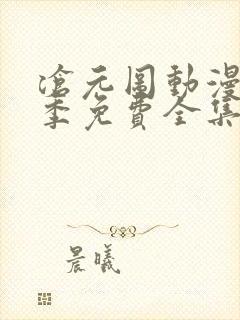 滄元圖動漫
季免費全集
晨曦